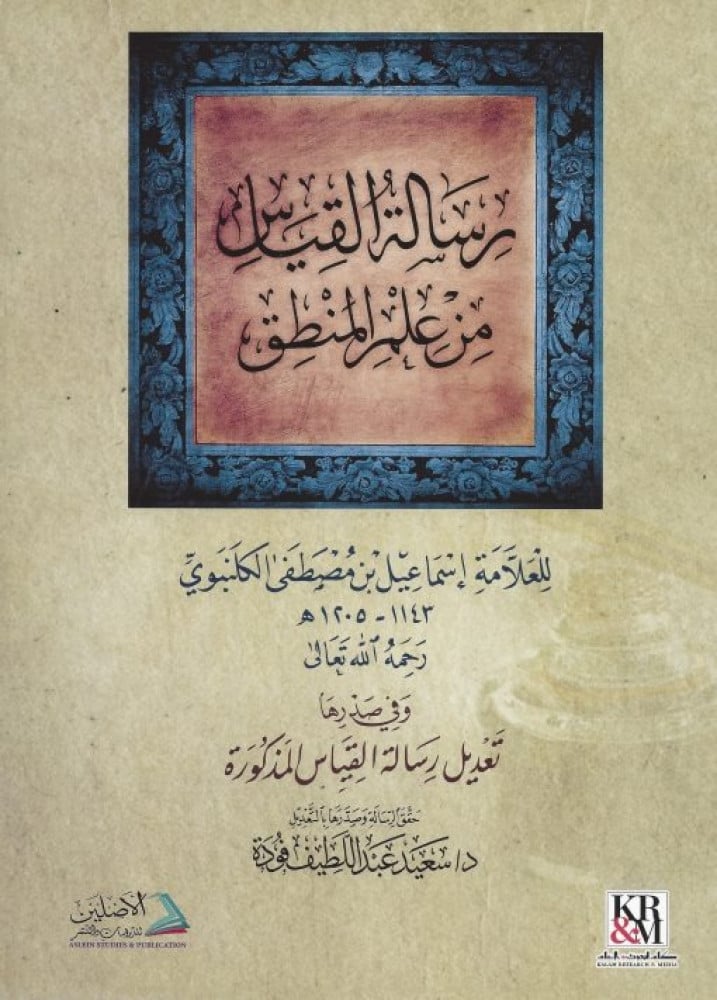 رِسَالَةُ القِيَاسِ
مِنْ عِلْمِ المَنْطِقِ
لِلْعَلَّامَةِ إِسْمَاعِيل بْن مُصْطَفَى الكَلَنْبَوِيِّ
١١٤٣ - ١٢٠٥ هـ
رَحِمَهُ اللهُ تَعَالَى
وَفِي صَدْرِهَا
تَعْدِيل رِسَالَة القِيَاس المَذْكُورَة
حَقَّقَ الرِّسَالَة وَصَدَّرَهَا بِالتَّعْدِيل
د. سَعِيد عَبْد اللَّطِيف فُودَة
الأصلين
للدراسات والنشر
ASLEIN STUDIES & PUBLICATION
KR
&M
كلام للبحوث والإعلام
KALAM RESEARCH & MEDIA